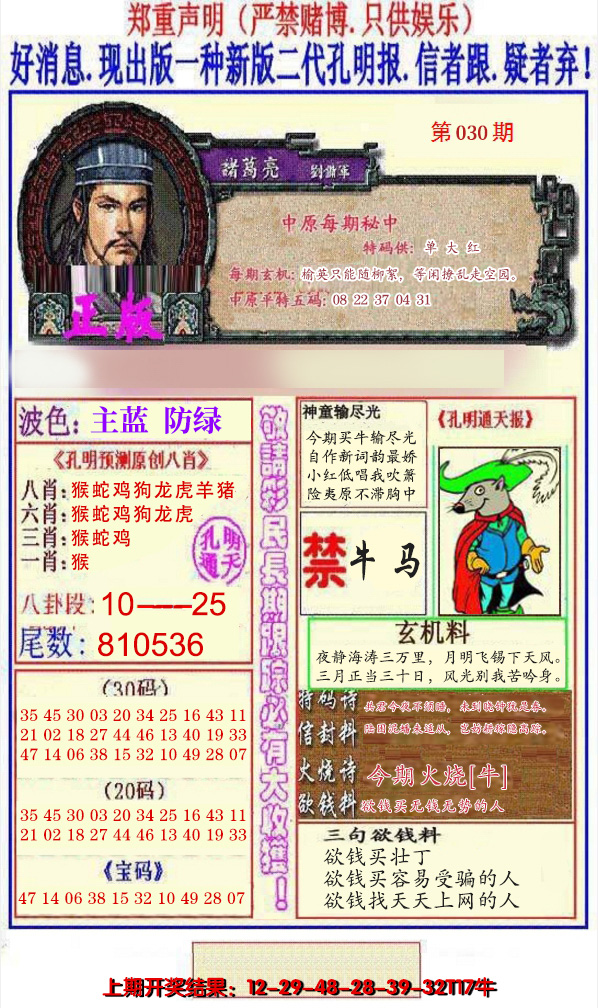 郑重声明（严禁赌博.只供娱乐）
好消息.现出版一种新版二代孔明报.信者跟.疑者弃!
第 030 期
諸葛亮 劉備軍
中原每期秘中
特码供: 单 大 红
每期玄机: 榆英只能随柳絮，等闲撩乱走空园。
中原平特五码: 08 22 37 04 31
正版
波色: 主蓝 防绿
《孔明预测原创八肖》
八肖: 猴蛇鸡狗龙虎羊猪
六肖: 猴蛇鸡狗龙虎
三肖: 猴蛇鸡
一肖: 猴
孔明通天
八卦段: 10——25
尾数: 810536
(30码)
35 45 30 03 20 34 25 16 43 11
21 02 18 27 44 46 13 40 19 33
47 14 06 38 15 32 10 49 28 07
(20码)
35 45 30 03 20 34 25 16 43 11
21 02 18 27 44 46 13 40 19 33
《宝码》
47 14 06 38 15 32 10 49 28 07
敬請彩民長期跟踪必有大收獲!
神童输尽光
今期买牛输尽光
自作新词韵最娇
小红低唱我吹箫
险夷原不滞胸中
《孔明通天报》
禁 牛 马
玄机料
夜静海涛三万里，月明飞锡下天风。
三月正当三十日，风光别我苦吟身。
特码诗 共君今夜不须睡，未到晓钟犹是春。
信封料
火烧诗 今期火烧[牛]
欲钱料 欲钱买无钱无势的人
三句欲钱料
欲钱买壮丁
欲钱买容易受骗的人
欲钱找天天上网的人
上期开奖结果：12-29-48-28-39-32T17牛